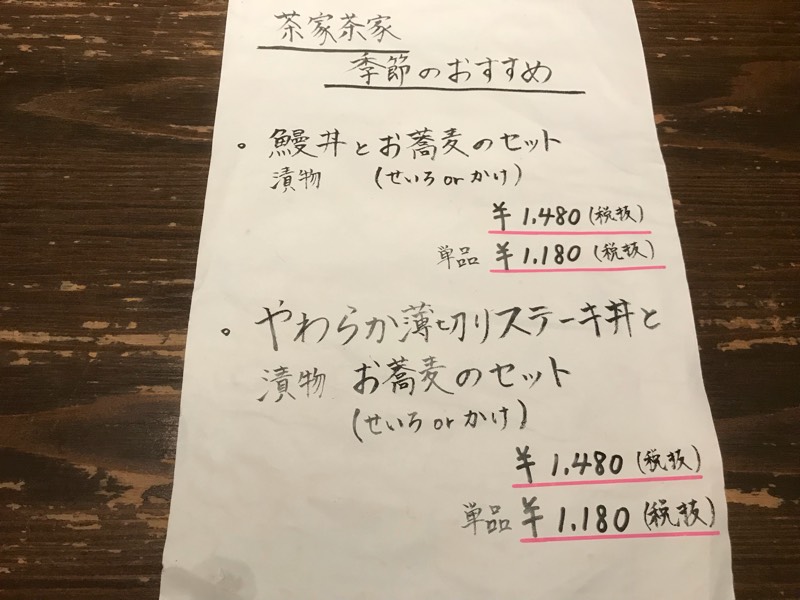 茶家茶家
季節のおすすめ
・鰻丼とお蕎麦のセット
漬物 (せいろorかけ)
¥1.480(税抜)
単品 ¥1.180(税抜)
・やわらか薄切りステーキ丼と
漬物 お蕎麦のセット
(せいろorかけ)
¥1.480(税抜)
単品 ¥1.180(税抜)